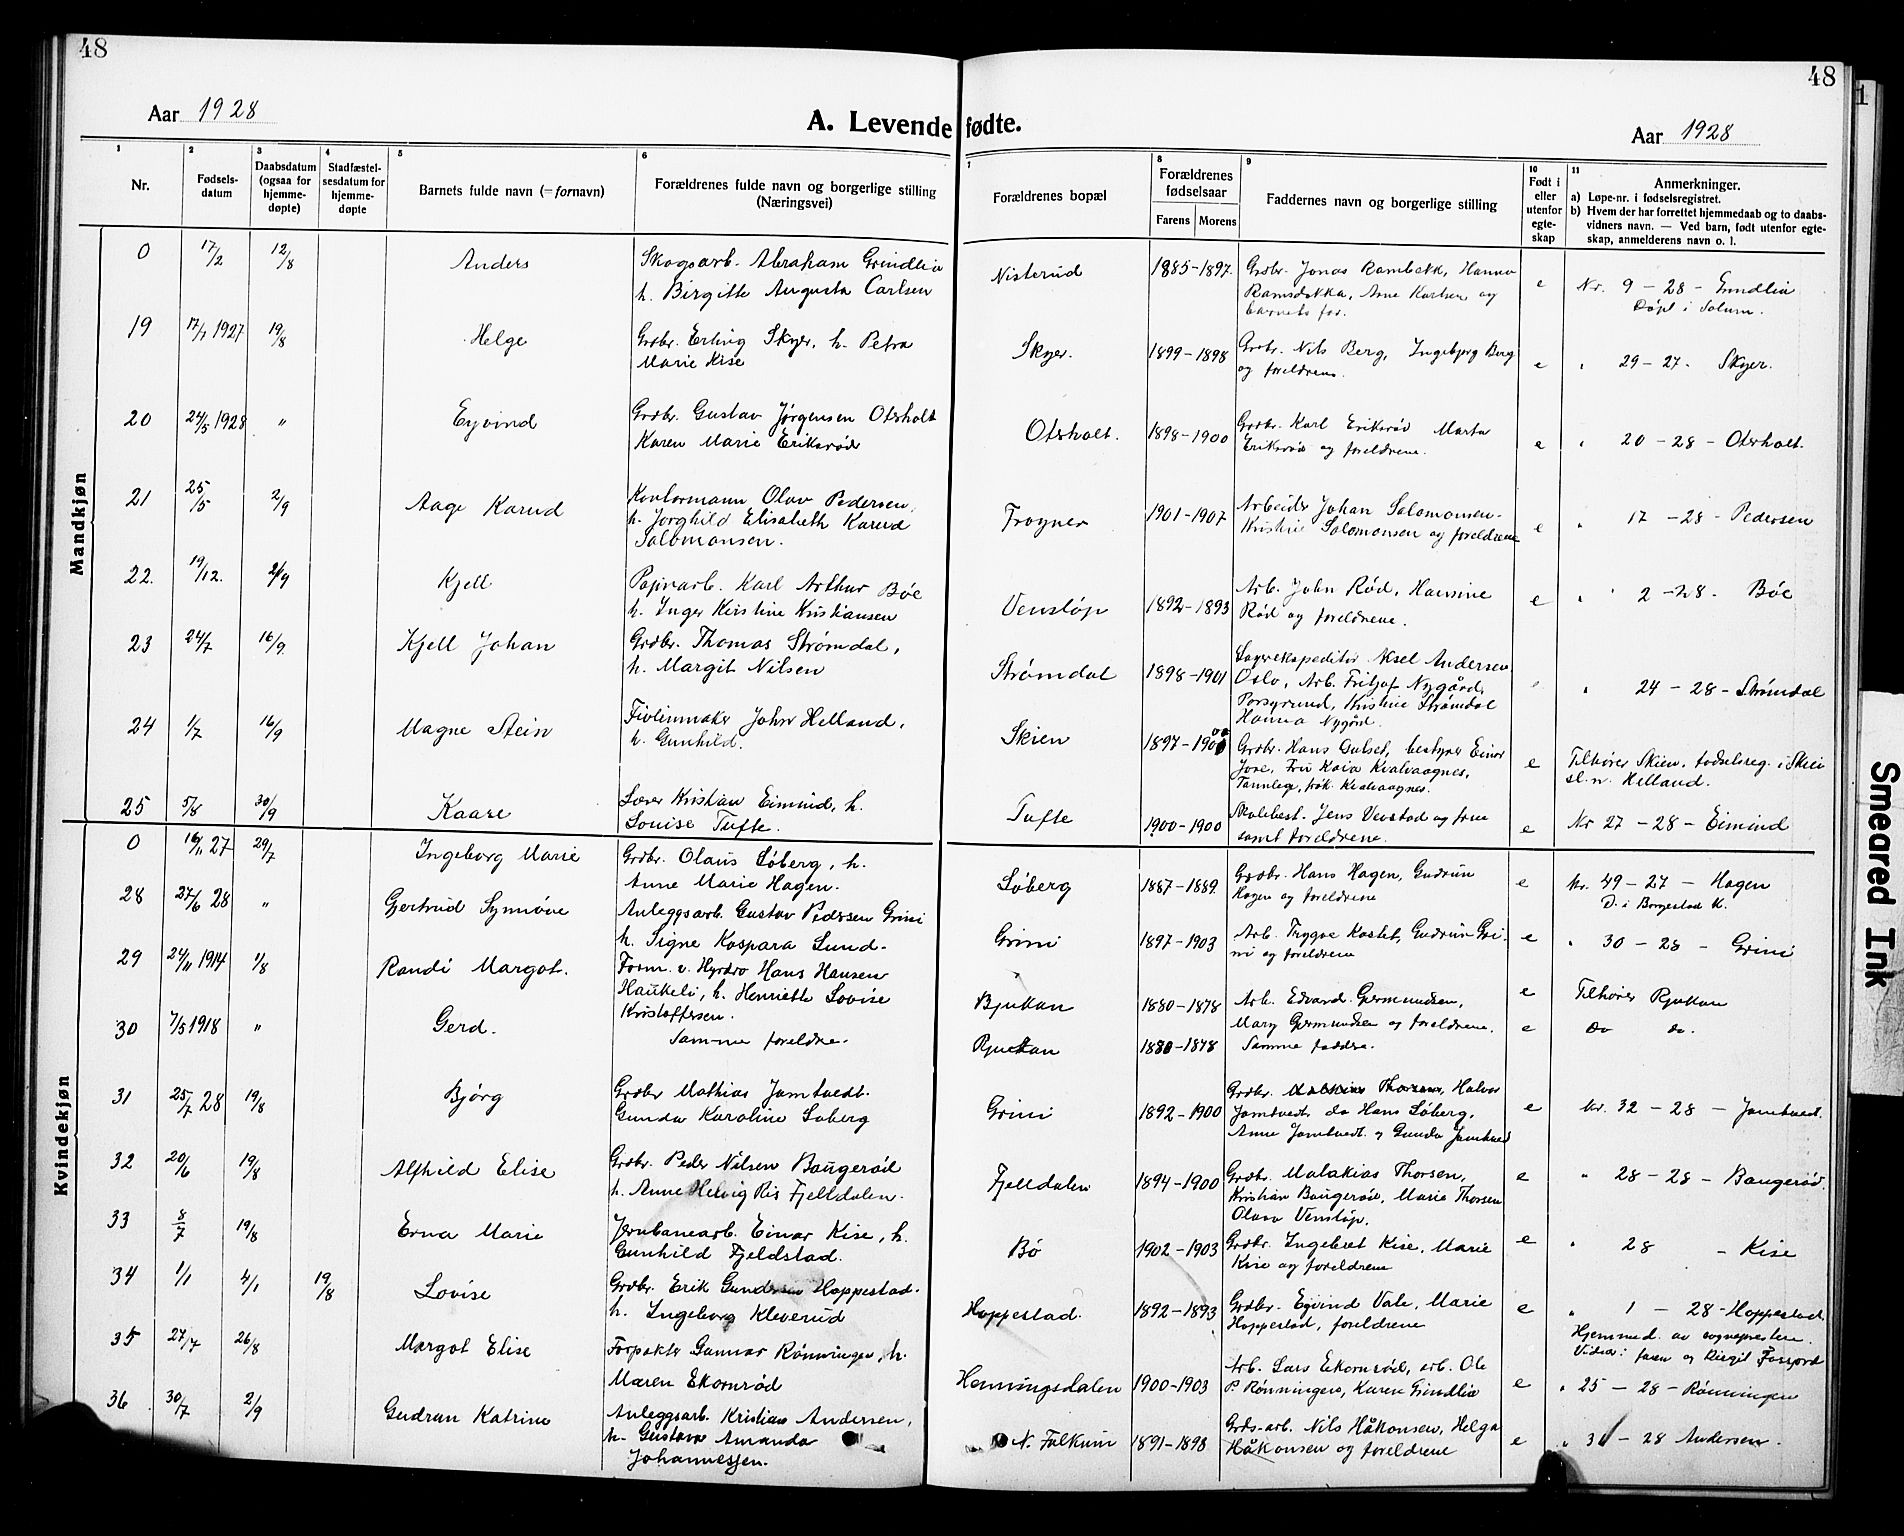 48
48
Aar 1928
A. Levende fødte.
Aar 1928
1
Nr.
2
Fødsels-
datum
3
Daabsdatum
(ogsaa for
hjemme-
døpte)
4
Stadfæstel-
sesdatum for
hjemme-
døpte
5
Barnets fulde navn (= fornavn)
6
Forældrenes fulde navn og borgerlige stilling
(Næringsvei)
7
Forældrenes bopæl
8
Forældrenes
fødselsaar
Farens
Morens
9
Faddernes navn og borgerlige stilling
10
Født i
eller
utenfor
egte-
skap
11
Anmerkninger.
a) Løpe-nr. i fødselsregistret.
b) Hvem der har forrettet hjemmedaab og to daabs-
vidners navn. — Ved barn, født utenfor egte-
skap, anmelderens navn o. l.
Mandkjøn
0 17/2 12/8 Anders Skogsarb. Abraham Grindlia
h. Birgitte Augusta Carlsen
Nisterud 1885-1897. Grdbr. Jonas Rambekk, Hanna
Arne og
barnets far.
e Nr. 9 - 28 - Grindlia
Døpt i Solum.
19 17/7 1927 19/8 Helge Grdbr. Erling Skyer, h. Petra
Marie Kise
Skyer. 1899-1898 Grdbr. Nils Berg, Ingebjørg Berg
og foreldrene.
e " 29 - 27 - Skyer.
20 24/5 1928 " Eyvind Grdbr. Gustav Jørgensen Oterholt
Karen Marie Eriksrød
Oterholt. 1898-1900 Grdbr. Karl Eriksrød Marta
Eriksrød og foreldrene.
e " 20 - 28 - Oterholt.
21 25/5 2/9 Aage Karud Kontormann Olav Pedersen,
h. Jorghild Elisabeth Karud
Salomonsen.
Frogner 1901-1907 Arbeider Johan Salomonsen.
Kristine Salomonsen og foreldrene
e " 17 - 28 - Pedersen
22. 19/12. 2/9 Kjell Papirarb. Karl Arthur Bøe
h. Inger Kristine Kristiansen
Venstøp 1892-1893 Arb. John Rød, Hansine
Rød og foreldrene.
e " 2 - 28 - Bøe
23 24/7 16/9. Kjell Johan Grdbr. Thomas Strømdal,
h. Margit Nilsen
Strømdal 1898-1901 Lagerekspeditør Aksel Andersen
Oslo, Arb. Fritjof Nygård,
Porsgrund, Kristine Strømdal
Hanna Nygård.
" 24 - 28 - Strømdal
24 1/7 16/9 Magne Stein Fiolinmaker John Helland,
h. Gunhild.
Skien 1897-1900 Grdbr. Hans Gulset, bestyrer Einar
Jore, Fru Kaia Kvalvaagnes,
Tannlege, frøk. Kvalvaagnes.
e Tilhører Skien, fødselsreg. i Skien
Helland.
25 5/8 30/9 Kaare Lærer Kristian Eimind, h.
Louise Tufte.
Tufte 1900-1900 Skolebest. Jens Venstad og frue
samt foreldrene.
e Nr 27 - 28 - Eimind
Kvindekjøn
0 16/11 27 29/7 Ingeborg Marie Grdbr. Olaus Løberg, h.
Anne Marie Hagen.
Løberg 1887-1889 Grdbr. Hans Hagen, Gudrun
Hagen og foreldrene
e Nr. 49 - 27 - Hagen
D. i Borgestad K.
28 27/6 28 " Gjertrud Synnøve Anleggsarb. Gustav Pedersen Grini
h. Signe Kaspara Lund-
Grini 1897-1903 Arb. Trygve Kastet, Gudrun Gri-
ni og foreldrene
e " 30 - 28 - Grini
29 24/11 1914 1/8 Randi Margot. Form. v. Hydro Hans Hansen
Haukeli, h. Henriette Lovise
Kristoffersen.
Rjukan 1880-1878 Arb. Edvard Germundsen,
Mary Germundsen og foreldrene.
e Tilhører Rjukan
30 7/5 1918 " Gerd. Samme foreldre.
Rjukan 1880-1878 Samme faddre.
e do do.
31 25/7 28 19/8 Bjørg Grdbr Mathias Jamtvedt.
Gunda Karoline Løberg
Grini 1892-1900 Grdbr. Halvor
Jamtvedt, do Hans Løberg,
Anne Jamtvedt og Gunda Jamtvedt
e Nr. 32 - 28 - Jamtvedt.
32 20/6 19/8 Alfhild Elise Grdbr. Peder Nilsen Baugerød
h. Anne Helvig Ris Fjelldalen.
Fjelldalen 1894-1900 Grdbr. Malakias Thorsen,
Kristian Baugerød, Marie Thorsen
Olava Venstøp.
e " 28 - 28 - Baugerød.
33 8/7 19/8 Erna Marie Jernbanearb. Einar Kise, h.
Gunhild Fjeldstad.
Bø 1902-1903 Grdbr. Ingebret Kise, Marie
Kise og foreldrene
e " 28 - Kise
34 1/1 4/1 19/8 Lovise Grdbr. Erik Gundersen Hoppestad.
h. Ingeborg Kleverud
Hoppestad. 1892-1893 Grdbr. Eyvind Vale, Marie
Hoppestad, foreldrene
e " 1 - 28 - Hoppestad
Hjemmed. av sognepresten.
Vidner: faren og Birgit Fossjord
35 27/7 26/8 Margot Elise Forpakter Gunnar Rønningen, h.
Maren Ekornrød
Henningsdalen 1900-1903 Arb. Lars Ekornrød, arb. Ole
P. Rønningen, Karen Grindlia
e " 25 - 28 - Rønningen
36 30/7 2/9 Gudrun Katrine Anleggsarb. Kristian Andersen,
h. Gustava Amanda
Johannessen.
N. Falkum 1891-1898 Grds-arb. Nils Håkonsen, Helga
Håkonsen og foreldrene
e " 31 - 28 Andersen.
Smeared Ink